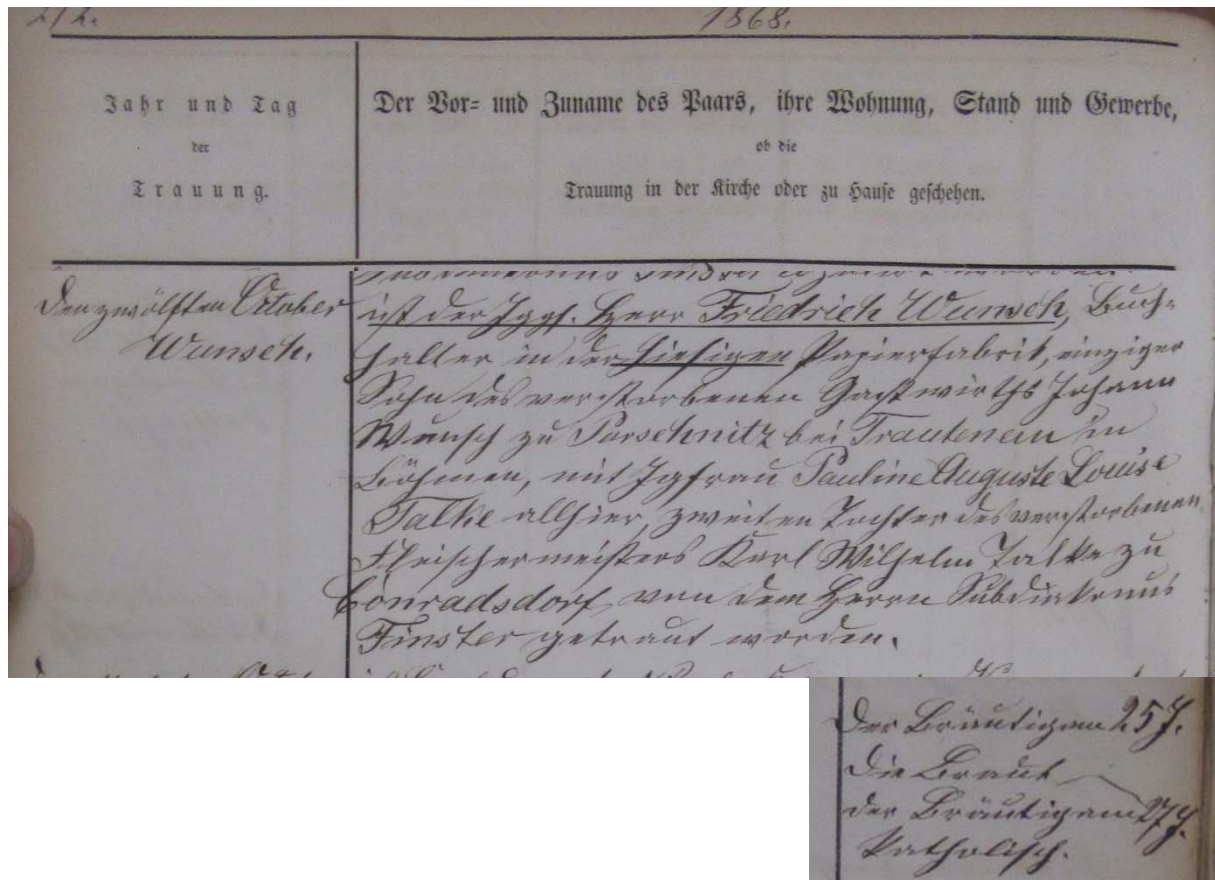 1868.
Jahr und Tag
der
Trauung.
Der Vor- und Zuname des Paars, ihre Wohnung, Stand und Gewerbe,
ob die
Trauung in der Kirche oder zu Hause geschehen.
Den zwölften October
Wunsch.
ist der Jggs. Herr Friedrich Wunsch, Buch-
halter in der hiesigen Papierfabrik, einziger
Sohn des verstorbenen Gastwirths Johann
Wunsch zu Parschnitz bei Trautenau in
Böhmen, mit Jgfrau Pauline Auguste Louise
Talke allhier, zweiten Tochter des verstorbenen
Fleischermeisters Karl Wilhelm Talke zu
Conradsdorf, von dem Herrn Subdiakonus
Finster getraut worden.
Der Bräutigam 25 J.
Die Braut
27 J.
der Bräutigam
katholisch.